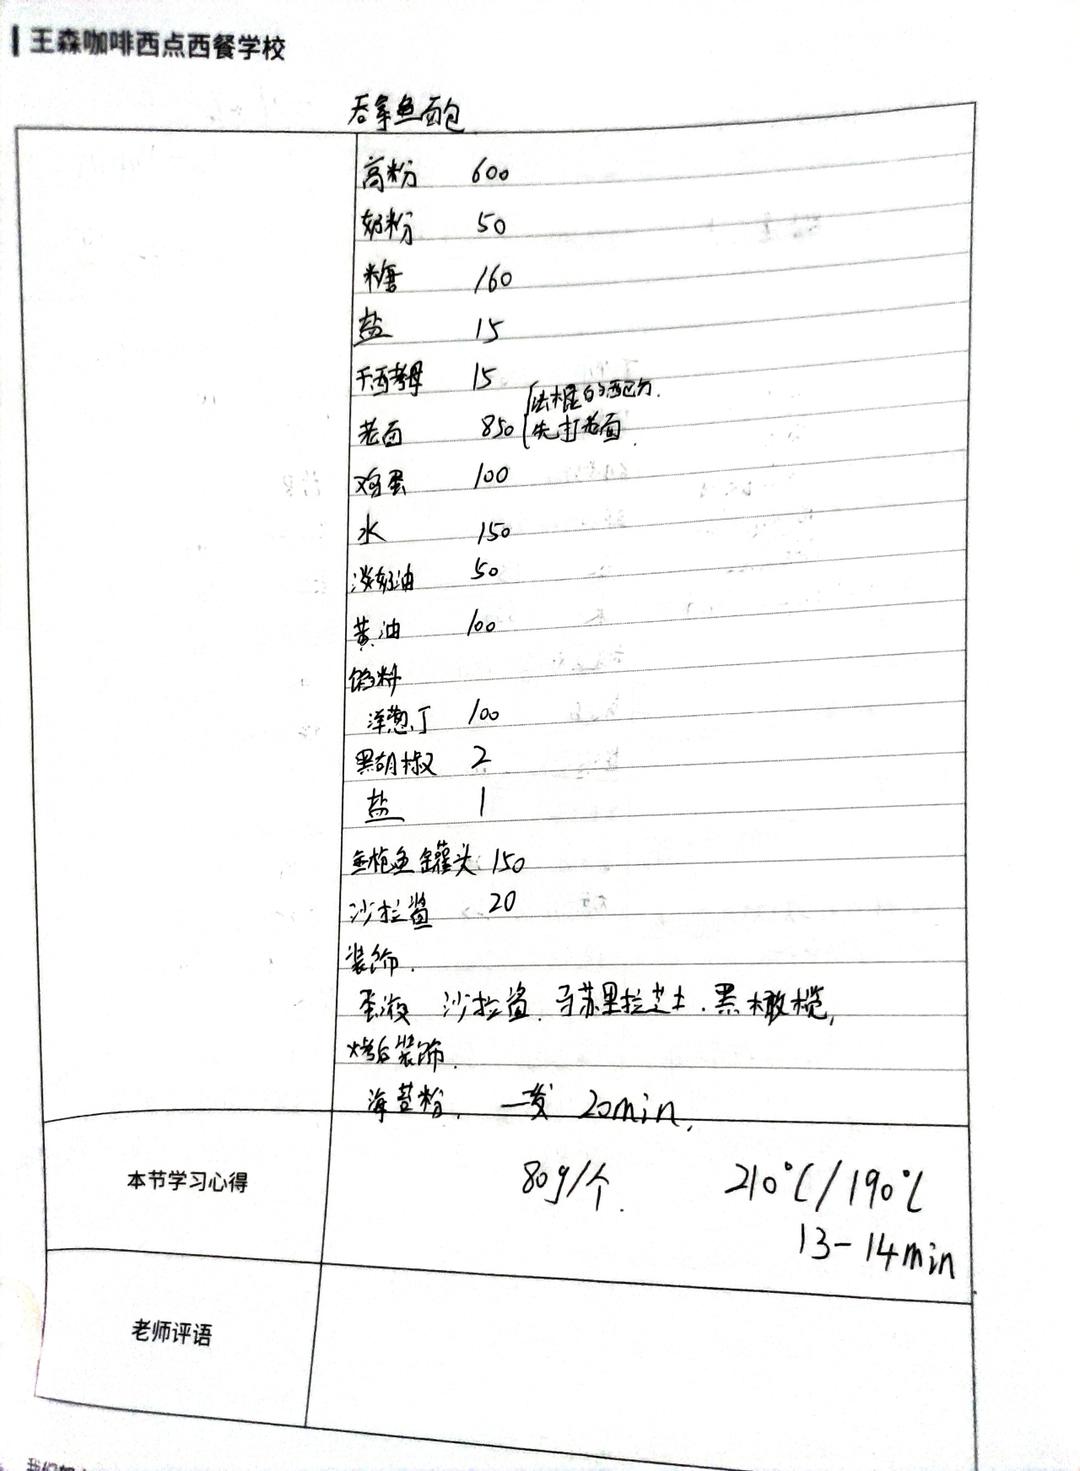 王森咖啡西点西餐学校
吞拿鱼面包
高粉 600
奶粉 50
糖 160
盐 15
干酵母 15
老面 850 法棍的配方.
先打老面.
鸡蛋 100
水 150
淡奶油 50
黄油 100
馅料
洋葱丁 100
黑胡椒 2
盐 1
金枪鱼罐头 150
沙拉酱 20
装饰.
蛋液 沙拉酱. 马苏里拉芝士. 黑橄榄,
烤后装饰.
海苔粉. 一发 20min.
本节学习心得
80g/个. 210℃/190℃
13-14min
老师评语